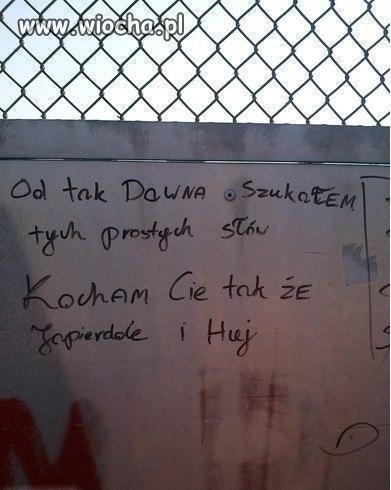 www.wiocha.pl
Od tak DaWNA SzukałEM
tych prostych słów
KochAM Cie tak ŻE
Zapierdole i Huj